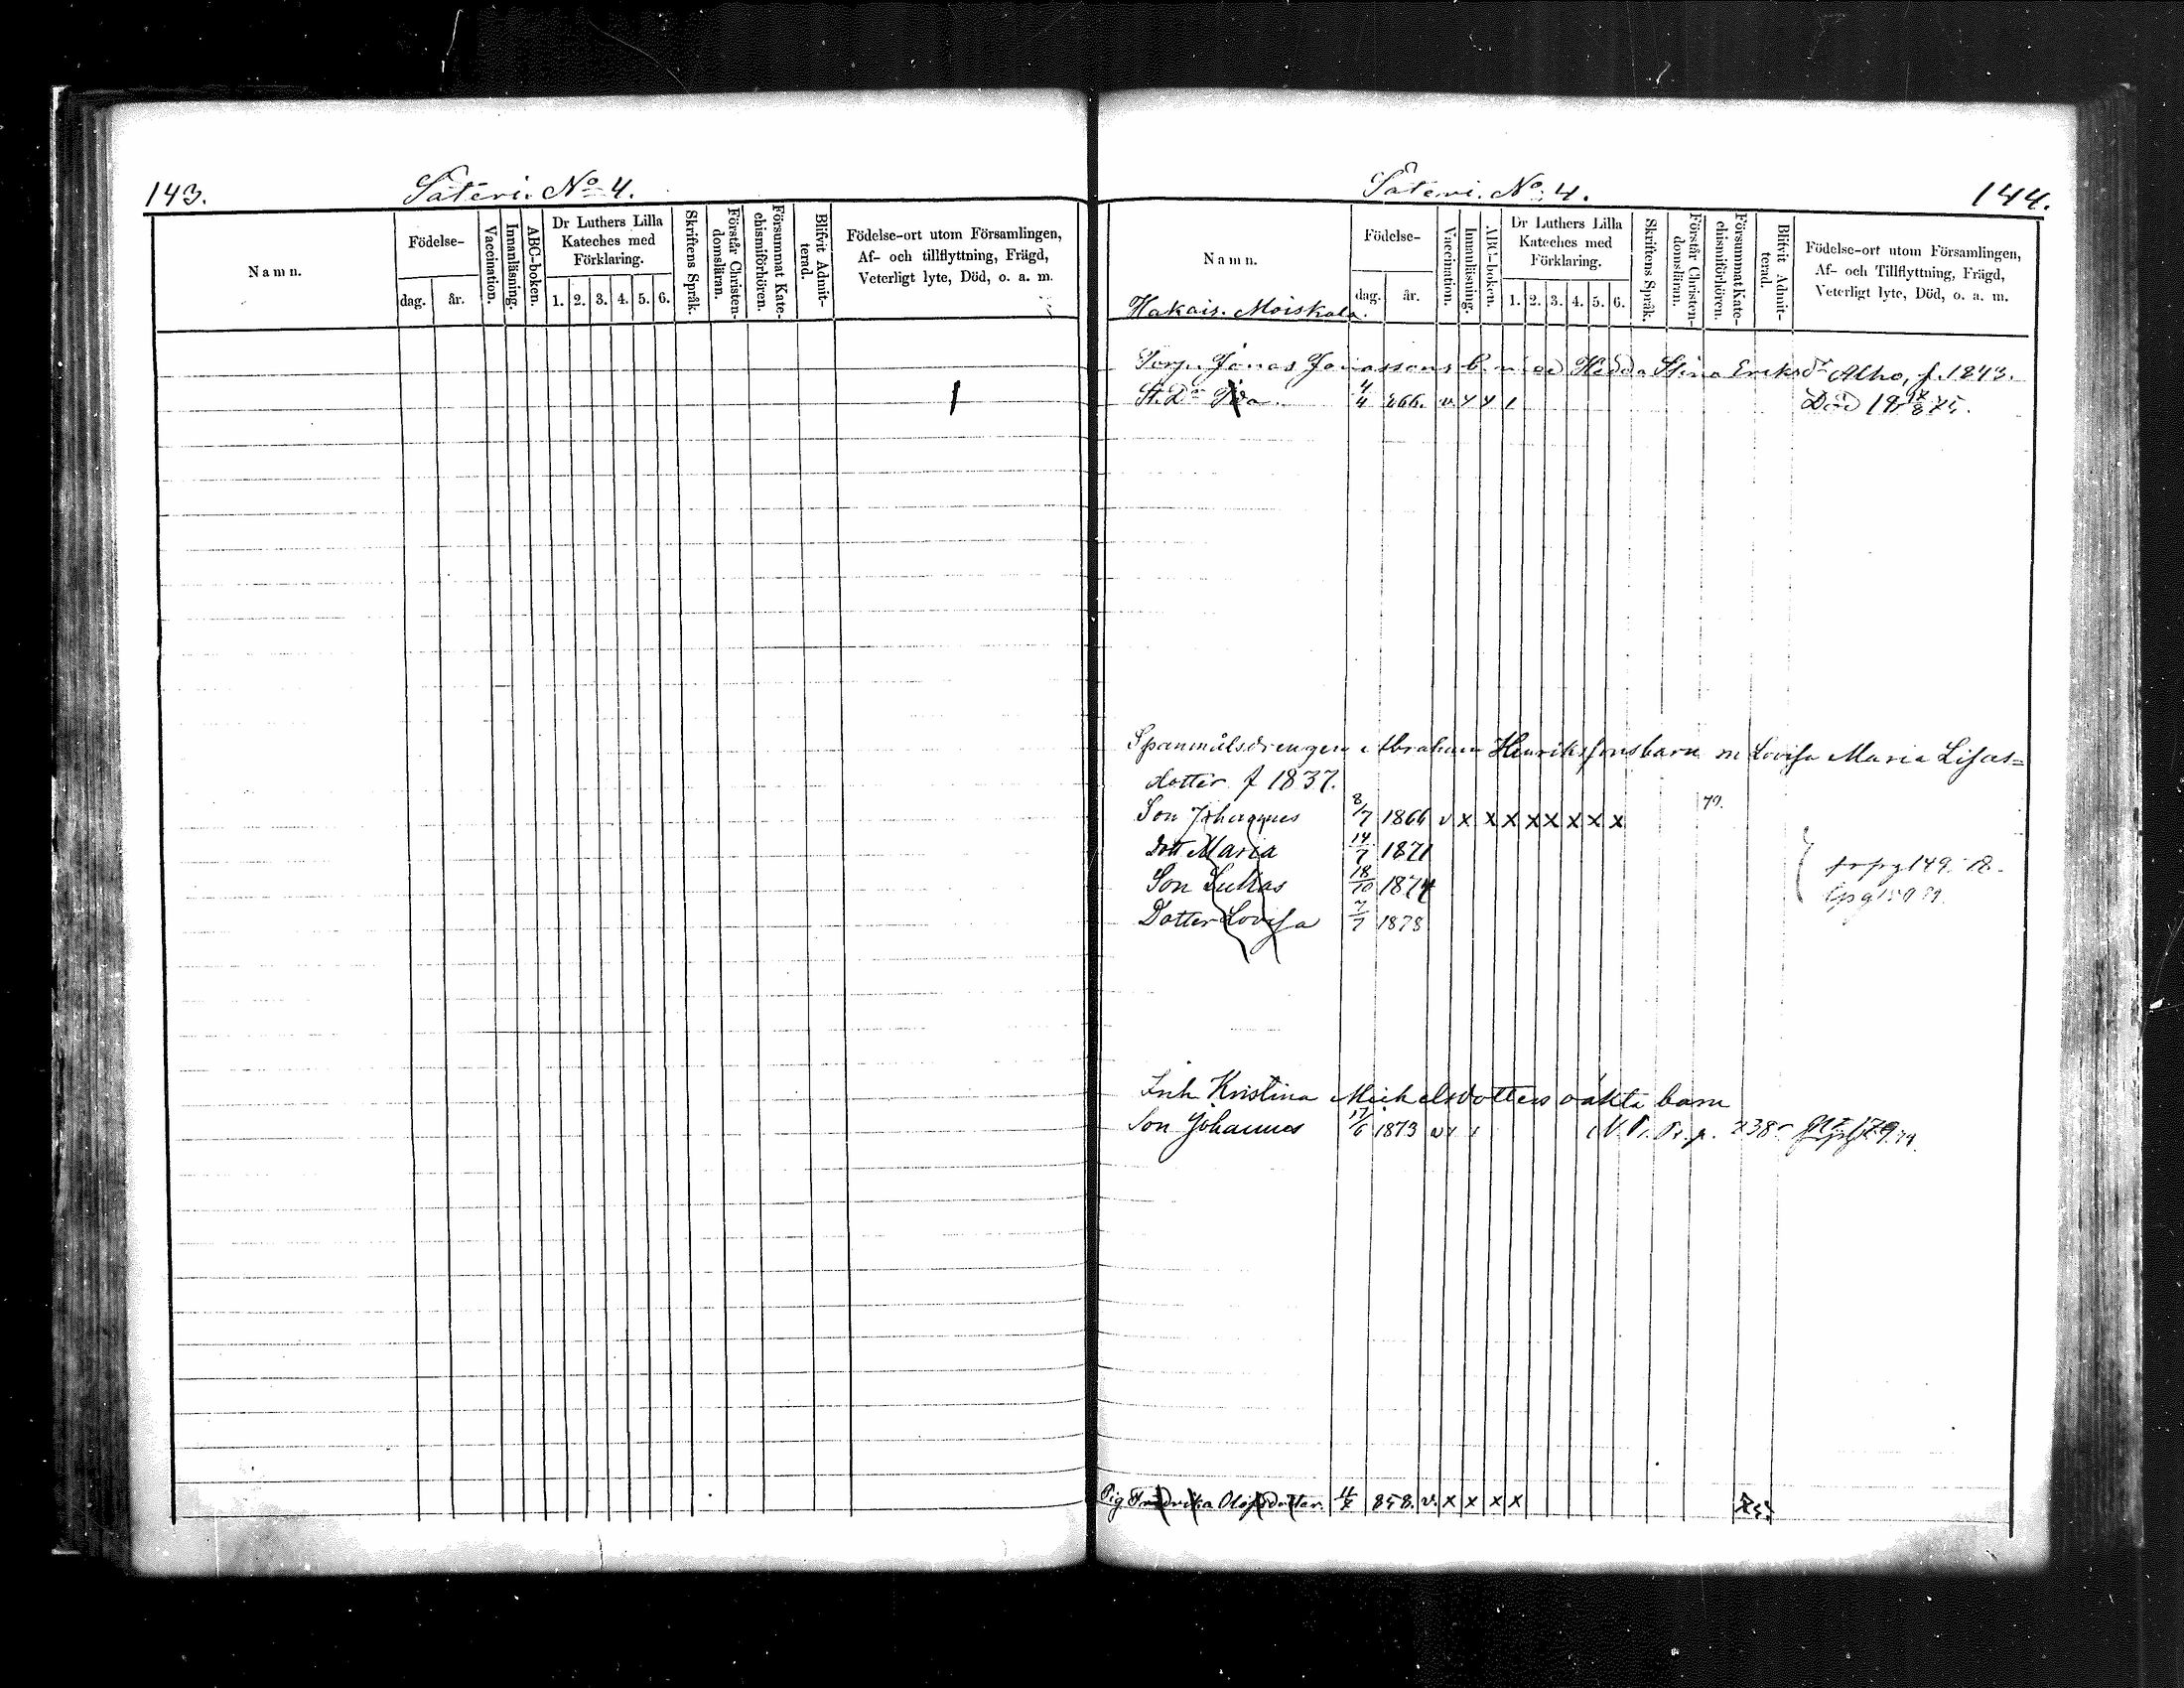 143.
Säteri. No 4.
Namn.
Födelse-
dag.
år.
Vaccination.
Innanläsning.
ABC-boken.
Dr Luthers Lilla
Kateches med
Förklaring.
1. 2. 3. 4. 5. 6.
Skriftens Språk.
Förstår Christen-
domsläran.
Försummat Kate-
chismiförhören.
Blifvit Admit-
terad.
Födelse-ort utom Församlingen,
Af- och tillflyttning, Frägd,
Veterligt lyte, Död, o. a. m.
Säteri. No 4.
144.
Namn.
Hakais. Moiskala.
Födelse-
dag.
år.
Vaccination.
Innanläsning.
ABC-boken.
Dr Luthers Lilla
Kateches med
Förklaring.
1. 2. 3. 4. 5. 6.
Skriftens Språk.
Förstår Christen-
domsläran.
Försummat Kate-
chismiförhören.
Blifvit Admit-
terad.
Födelse-ort utom Församlingen,
Af- och Tillflyttning, Frägd,
Veterligt lyte, Död, o. a. m.
Torp. Jonas Jonassons b. med Hedda Stina Eriksdr Alho, f. 1843.
St. Dr Ida 4/4 866. v x x 1 Död
Spanmålsdrengen Abraham Henrikssons barn m Lovisa Maria Lisas=
dotter f 1837.
Son Johannes 8/7 1866 v x x x x x x x x 79.
Dott Maria 14/7 1871
Son Lukas 18/10 1874
Dotter Lovisa 7/7 1878
Inh Kristina Michelsdotters oäkta barn
Son Johannes 17/6 1873 v
Pig Fredrika Olofsdotter. 858. v. x x x x